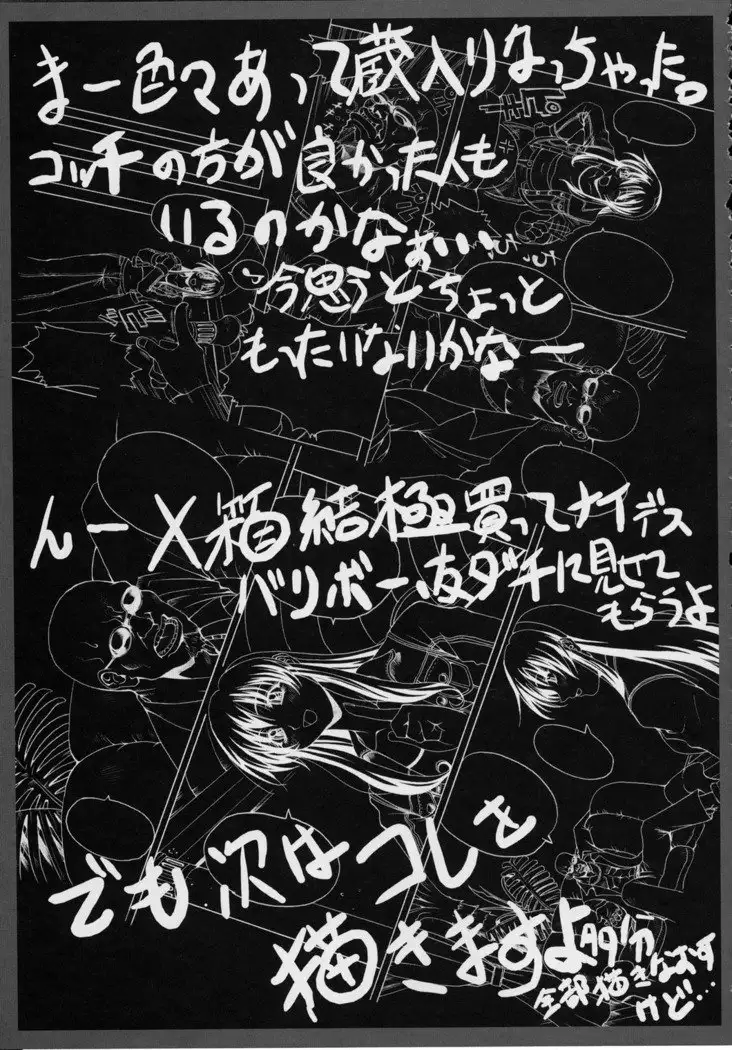 まー色々あって蔵入りなっちゃった。
コッチの方が良かった人も
いるのかなぁぃぃ
今思うとちょっと
もったいないかなー
んーX箱結極買ってナイデス
バリボー、友ダチに見せて
もらうよ
でも次はコレを
描きますよ多分
全部描きなおす
けど…